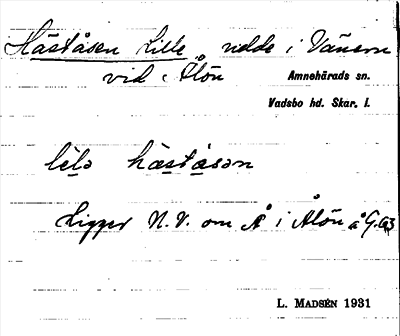 Håståsen Lille udde i Vänern
vid Ålön
Amnehärads sn.
Vadsbo hd. Skar. l.
lilə håståsən
Ligger N.V. om Å i Ålön å G.
L. MADSÉN 1931